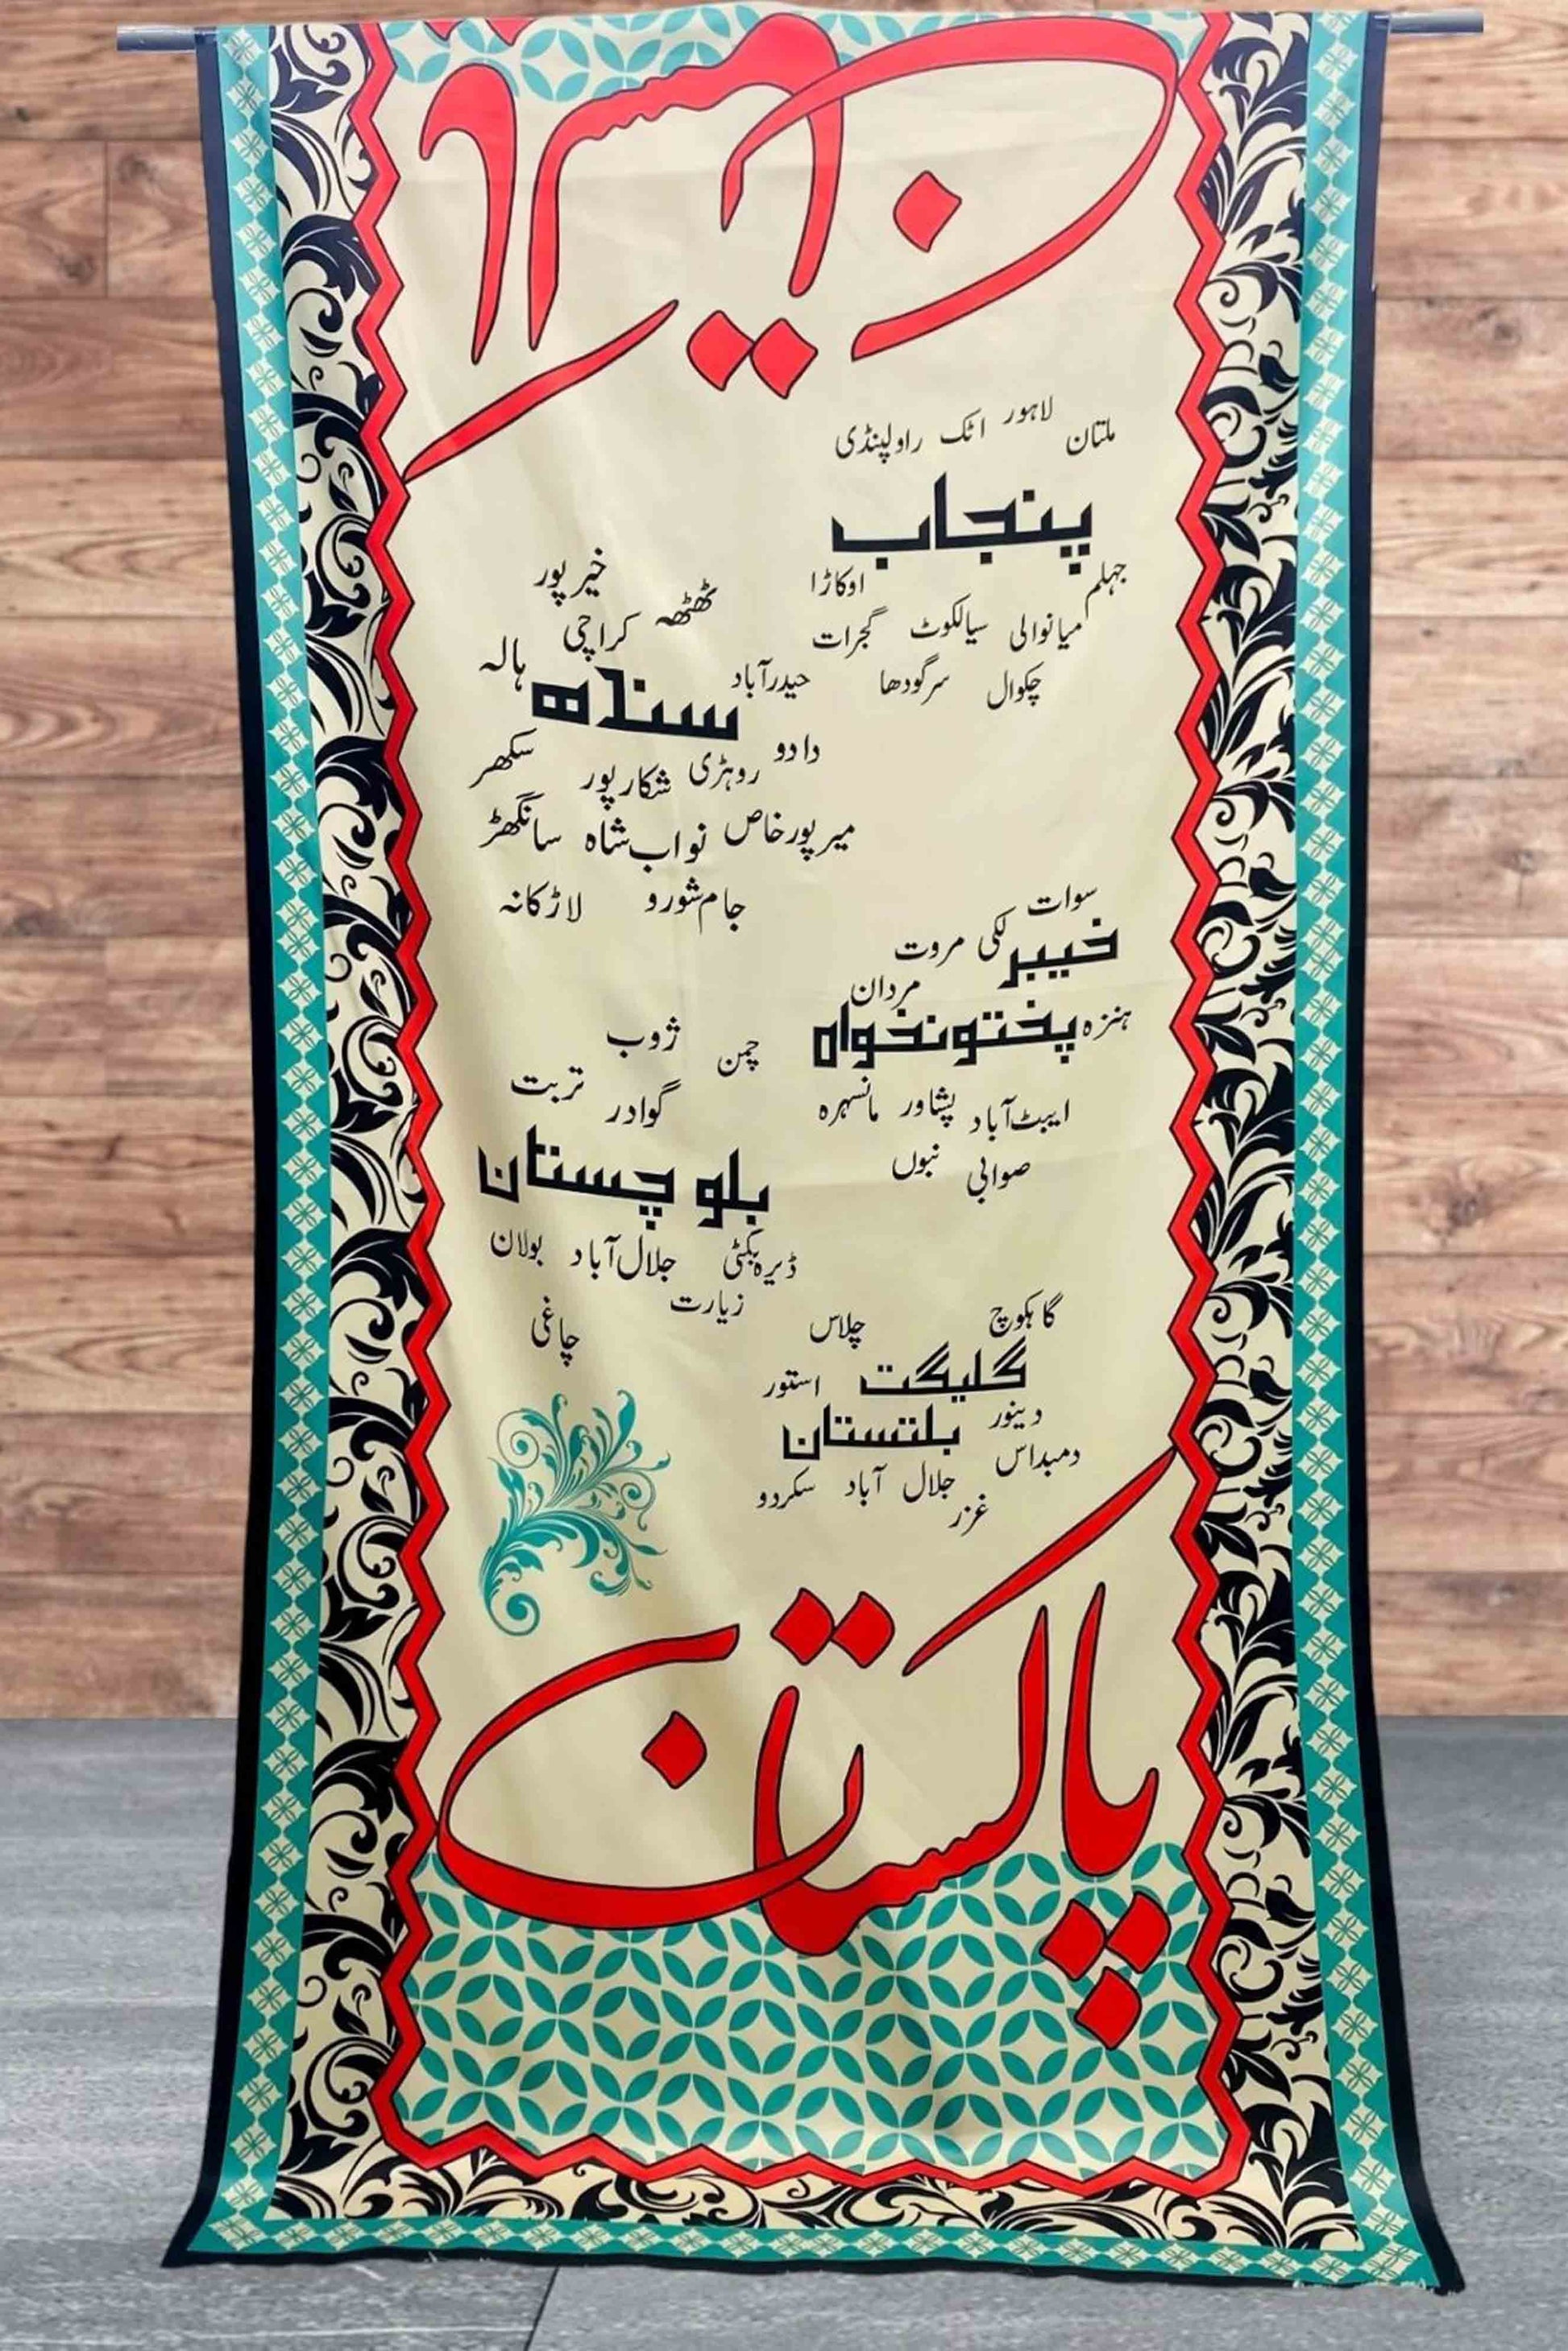 پاکستان
ملتان لاہور اٹک راولپنڈی
پنجاب
جہلم اوکاڑا
میانوالی سیالکوٹ گجرات
چکوال سرگودھا
خیرپور
ٹھٹھہ کراچی
ہالہ
حیدرآباد
سندھ
دادو روہڑی شکارپور سکھر
میرپورخاص نواب‌شاہ سانگھڑ
جام‌شورو لاڑکانہ
سوات
خیبر لکی مروت
مردان
ہنزہ پختونخواہ
ایبٹ‌آباد پشاور مانسہرہ
صوابی نبوں
چمن ژوب
گوادر تربت
بلوچستان
ڈیرہ بگٹی جلال‌آباد بولان
زیارت
چاغی
گاہکوچ چلاس
گلیگت استور
دینور
بلتستان
دمبداس
جلال آباد سکردو
غزر
پاکستان